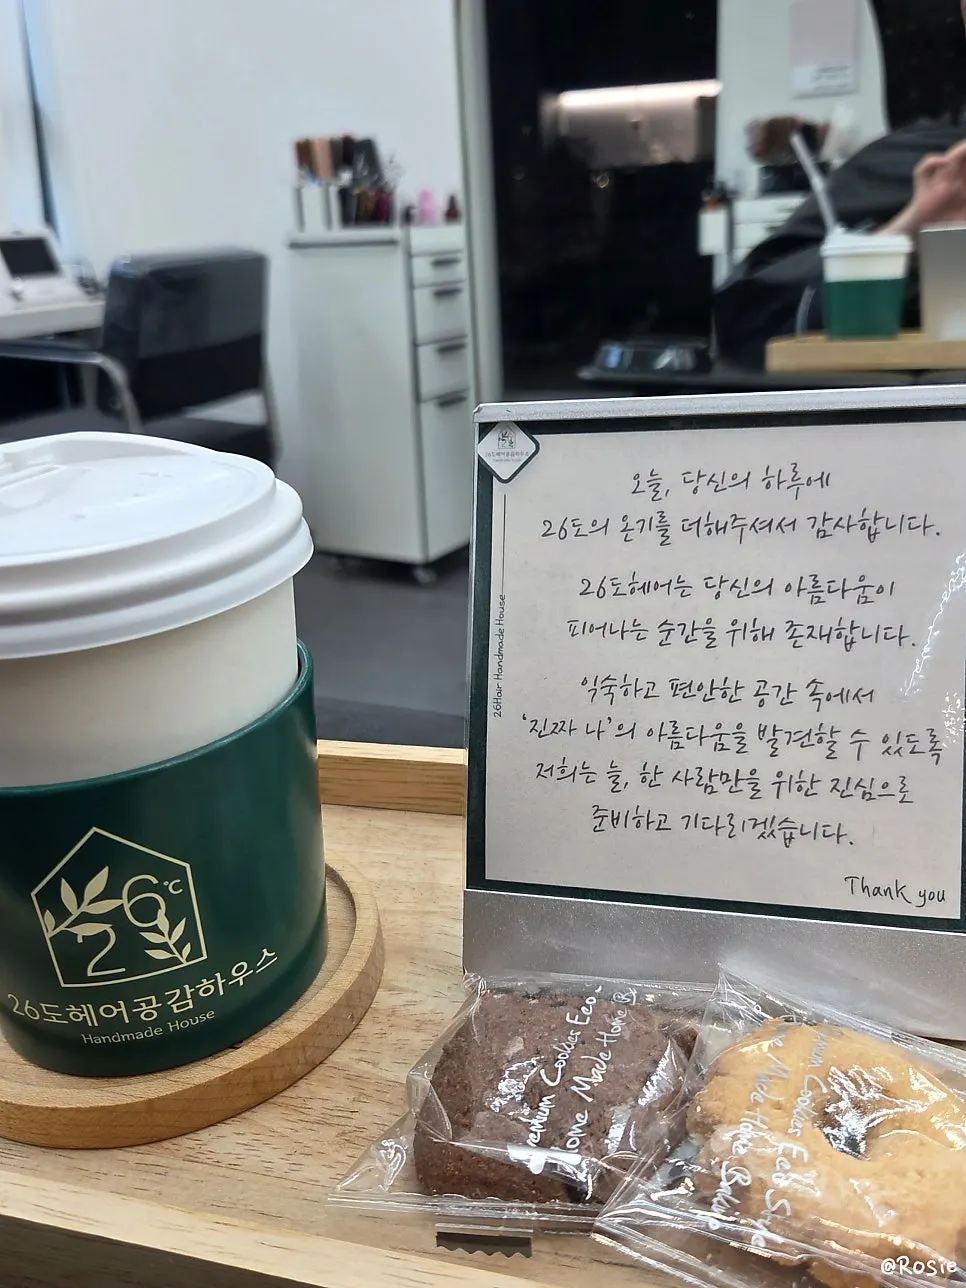 26도헤어공감하우스
오늘, 당신의 하루에
26도의 온기를 더해주셔서 감사합니다.
26도헤어는 당신의 아름다움이
피어나는 순간을 위해 존재합니다.
익숙하고 편안한 공간 속에서
'진짜 나'의 아름다움을 발견할 수 있도록
저희는 늘, 한 사람만을 위한 진심으로
준비하고 기다리겠습니다.
Thank you
26Hair Handmade House
26°C
26도헤어공감하우스
Handmade House
Premium Cookies Eco-
Home Made Home ®
Cookies Eco Style
Home
@Rosie